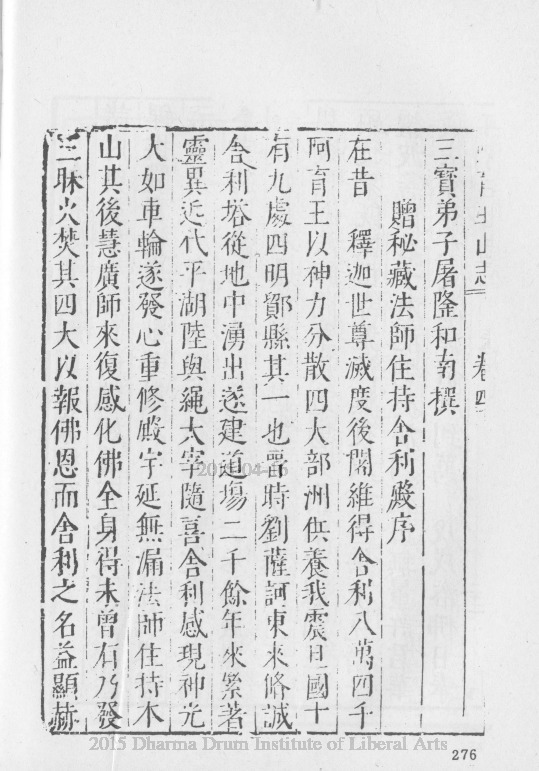 阿育王山志 卷四
三寶弟子屠隆和南撰
贈秘藏法師住持舍利殿序
在昔 釋迦世尊滅度後闍維得舍利八萬四千
阿育王以神力分散四大部洲供養我震旦國十
有九處四明鄮縣其一也晉時劉薩訶東來俻誠
舍利塔從地中湧出遂建道場二千餘年來累著
靈異近代平湖陸與繩太宰隨喜舍利感現神光
大如車輪遂發心重修殿宇延無漏法師住持本
山其後慧廣師來復感化佛全身得未曾有乃發
三昧火焚其四大以報佛恩而舍利之名益顯赫
2015 Dharma Drum Institute of Liberal Arts
276